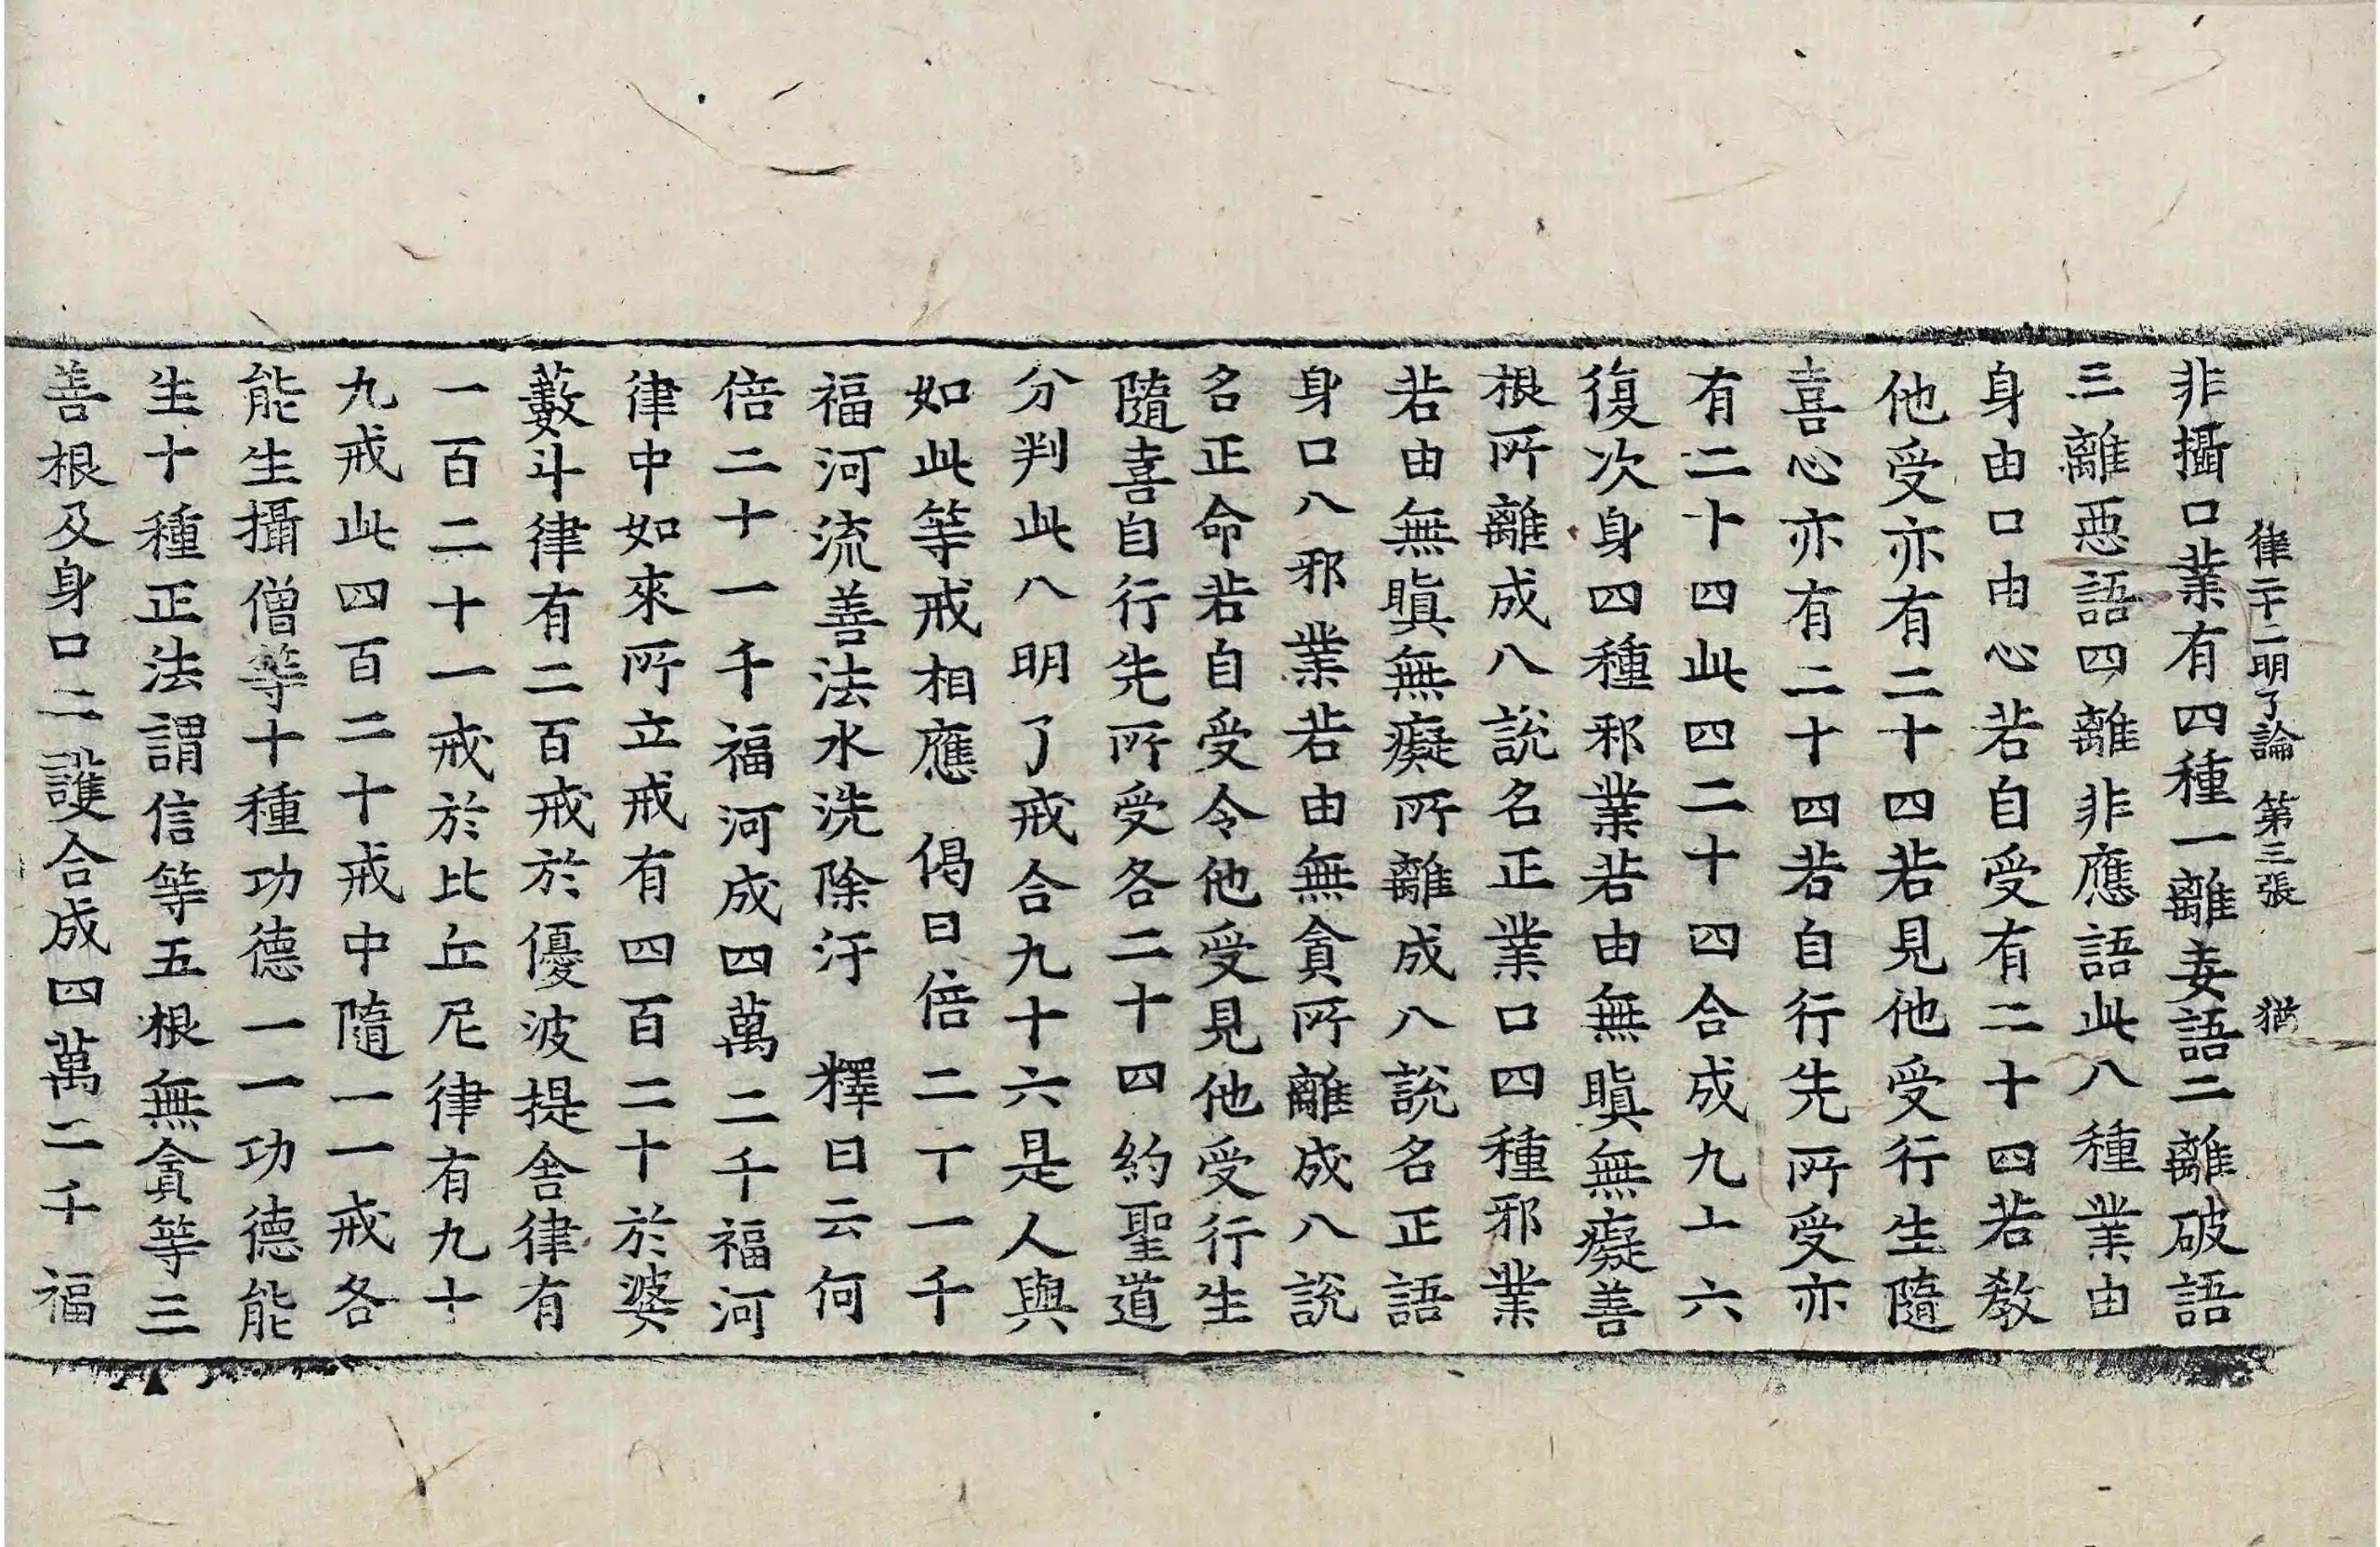 律二十二明了論 第三張 猶
非攝口業有四種一離妄語二離破語
三離惡語四離非應語此八種業由
身由口由心若自受有二十四若教
他受亦有二十四若見他受行生隨
喜心亦有二十四若自行先所受亦
有二十四此四二十四合成九十六
復次身四種邪業若由無瞋無癡善
根所離成八說名正業口四種邪業
若由無瞋無癡所離成八說名正語
身口八邪業若由無貪所離成八說
名正命若自受令他受見他受行生
隨喜自行先所受各二十四約聖道
分判此八明了戒合九十六是人與
如此等戒相應 偈曰倍二十一千
福河流善法水洗除汙 釋曰云何
倍二十一千福河成四萬二千福河
律中如來所立戒有四百二十於婆
藪斗律有二百戒於優波提舍律有
一百二十一戒於比丘尼律有九十
九戒此四百二十戒中隨一一戒各
能生攝僧等十種功德一一功德能
生十種正法謂信等五根無貪等三
善根及身口二護合成四萬二千福